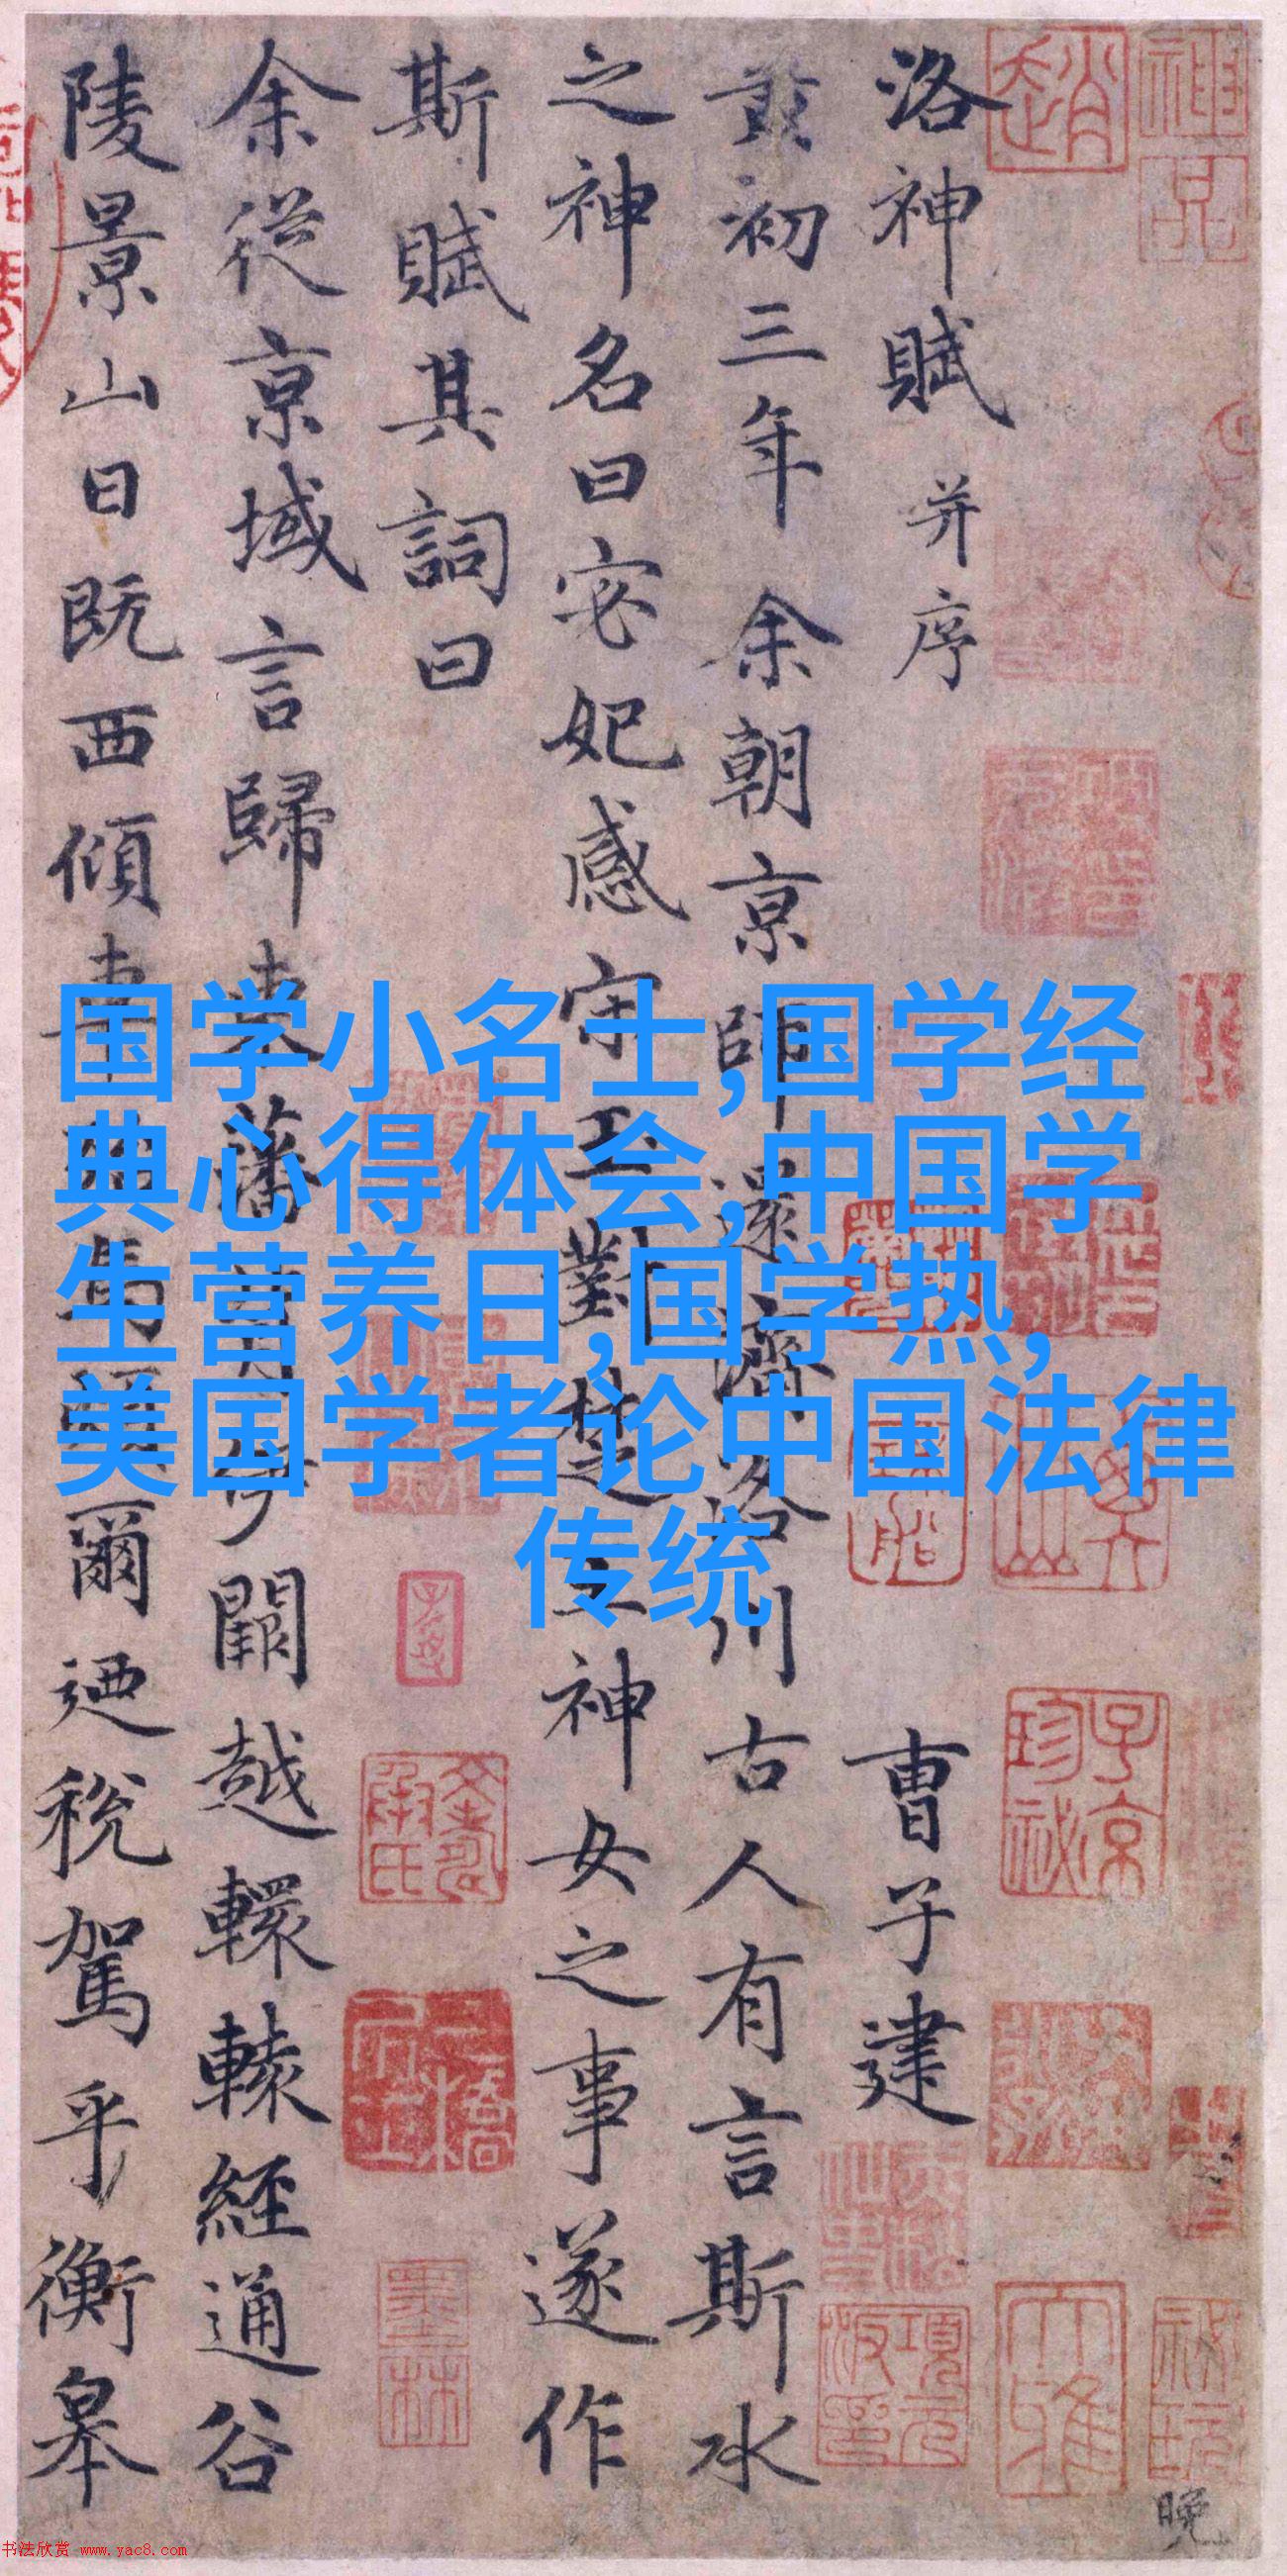 洛神賦 并序 曹子建
黃初三年余朝京師還濟洛川古人有言斯水
之神名曰宓妃感宋玉對楚王神女之事遂作
斯賦其詞曰
余從京域言歸東藩背伊闕越轘轅經通谷
陵景山日既西傾車殆馬煩爾迺稅駕乎衡皋
国学小名士,国学经
典心得体会,中国学
生营养日,国学热,
美国学者论中国法律
传统
趙
子京
珍祕
墨林
項元
晚
书法欣赏 www.yac8.com